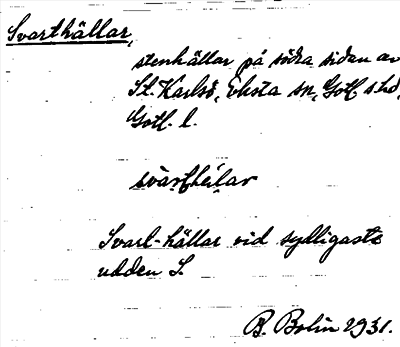 Svarthällar,
stenhällar på södra sidan av
St. Karlsö, Eksta sn, Gotl. s. hd,
Gotl. l.
svart-hällar vid sydligaste
udden S.
B. Bolin 1931.